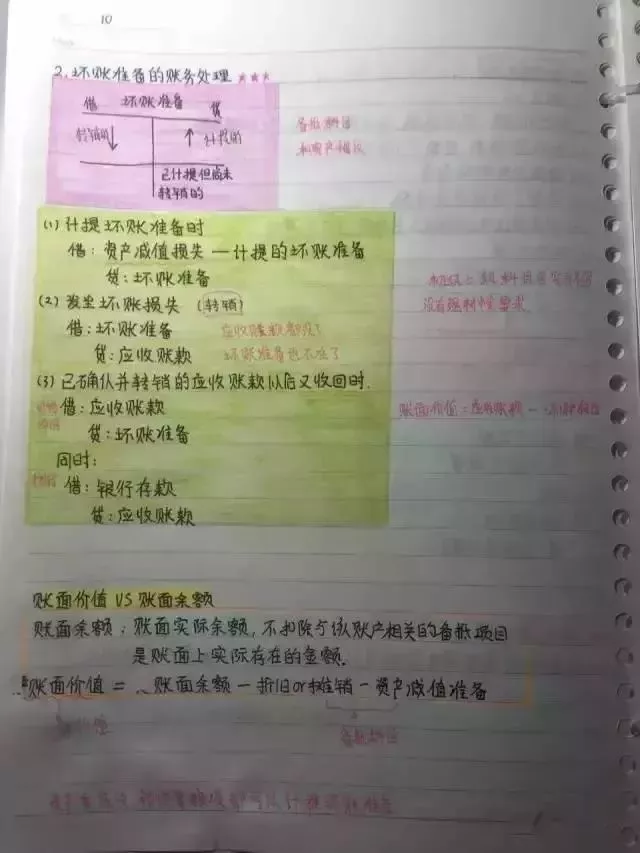 10
2.坏账准备的账务处理 ★★★
借 坏账准备 贷
转销的↓ ↑计提的
已计提但尚未
转销的
备抵科目
和资产相反
(1)计提坏账准备时
借:资产减值损失—计提的坏账准备
贷:坏账准备
(2)发生坏账损失(转销)
没有强制性要求
借:坏账准备 应收账款都没了
贷:应收账款 坏账准备也不在了
(3)已确认并转销的应收账款以后又收回时.
借:应收账款
账面价值=应收账款-坏账准备
贷:坏账准备
同时:
借:银行存款
贷:应收账款
账面价值 VS 账面余额
账面余额:账面实际余额,不扣除与该账户相关的备抵项目
是账面上实际存在的金额.
账面价值= 账面余额-折旧or摊销-资产减值准备
价值
备抵科目